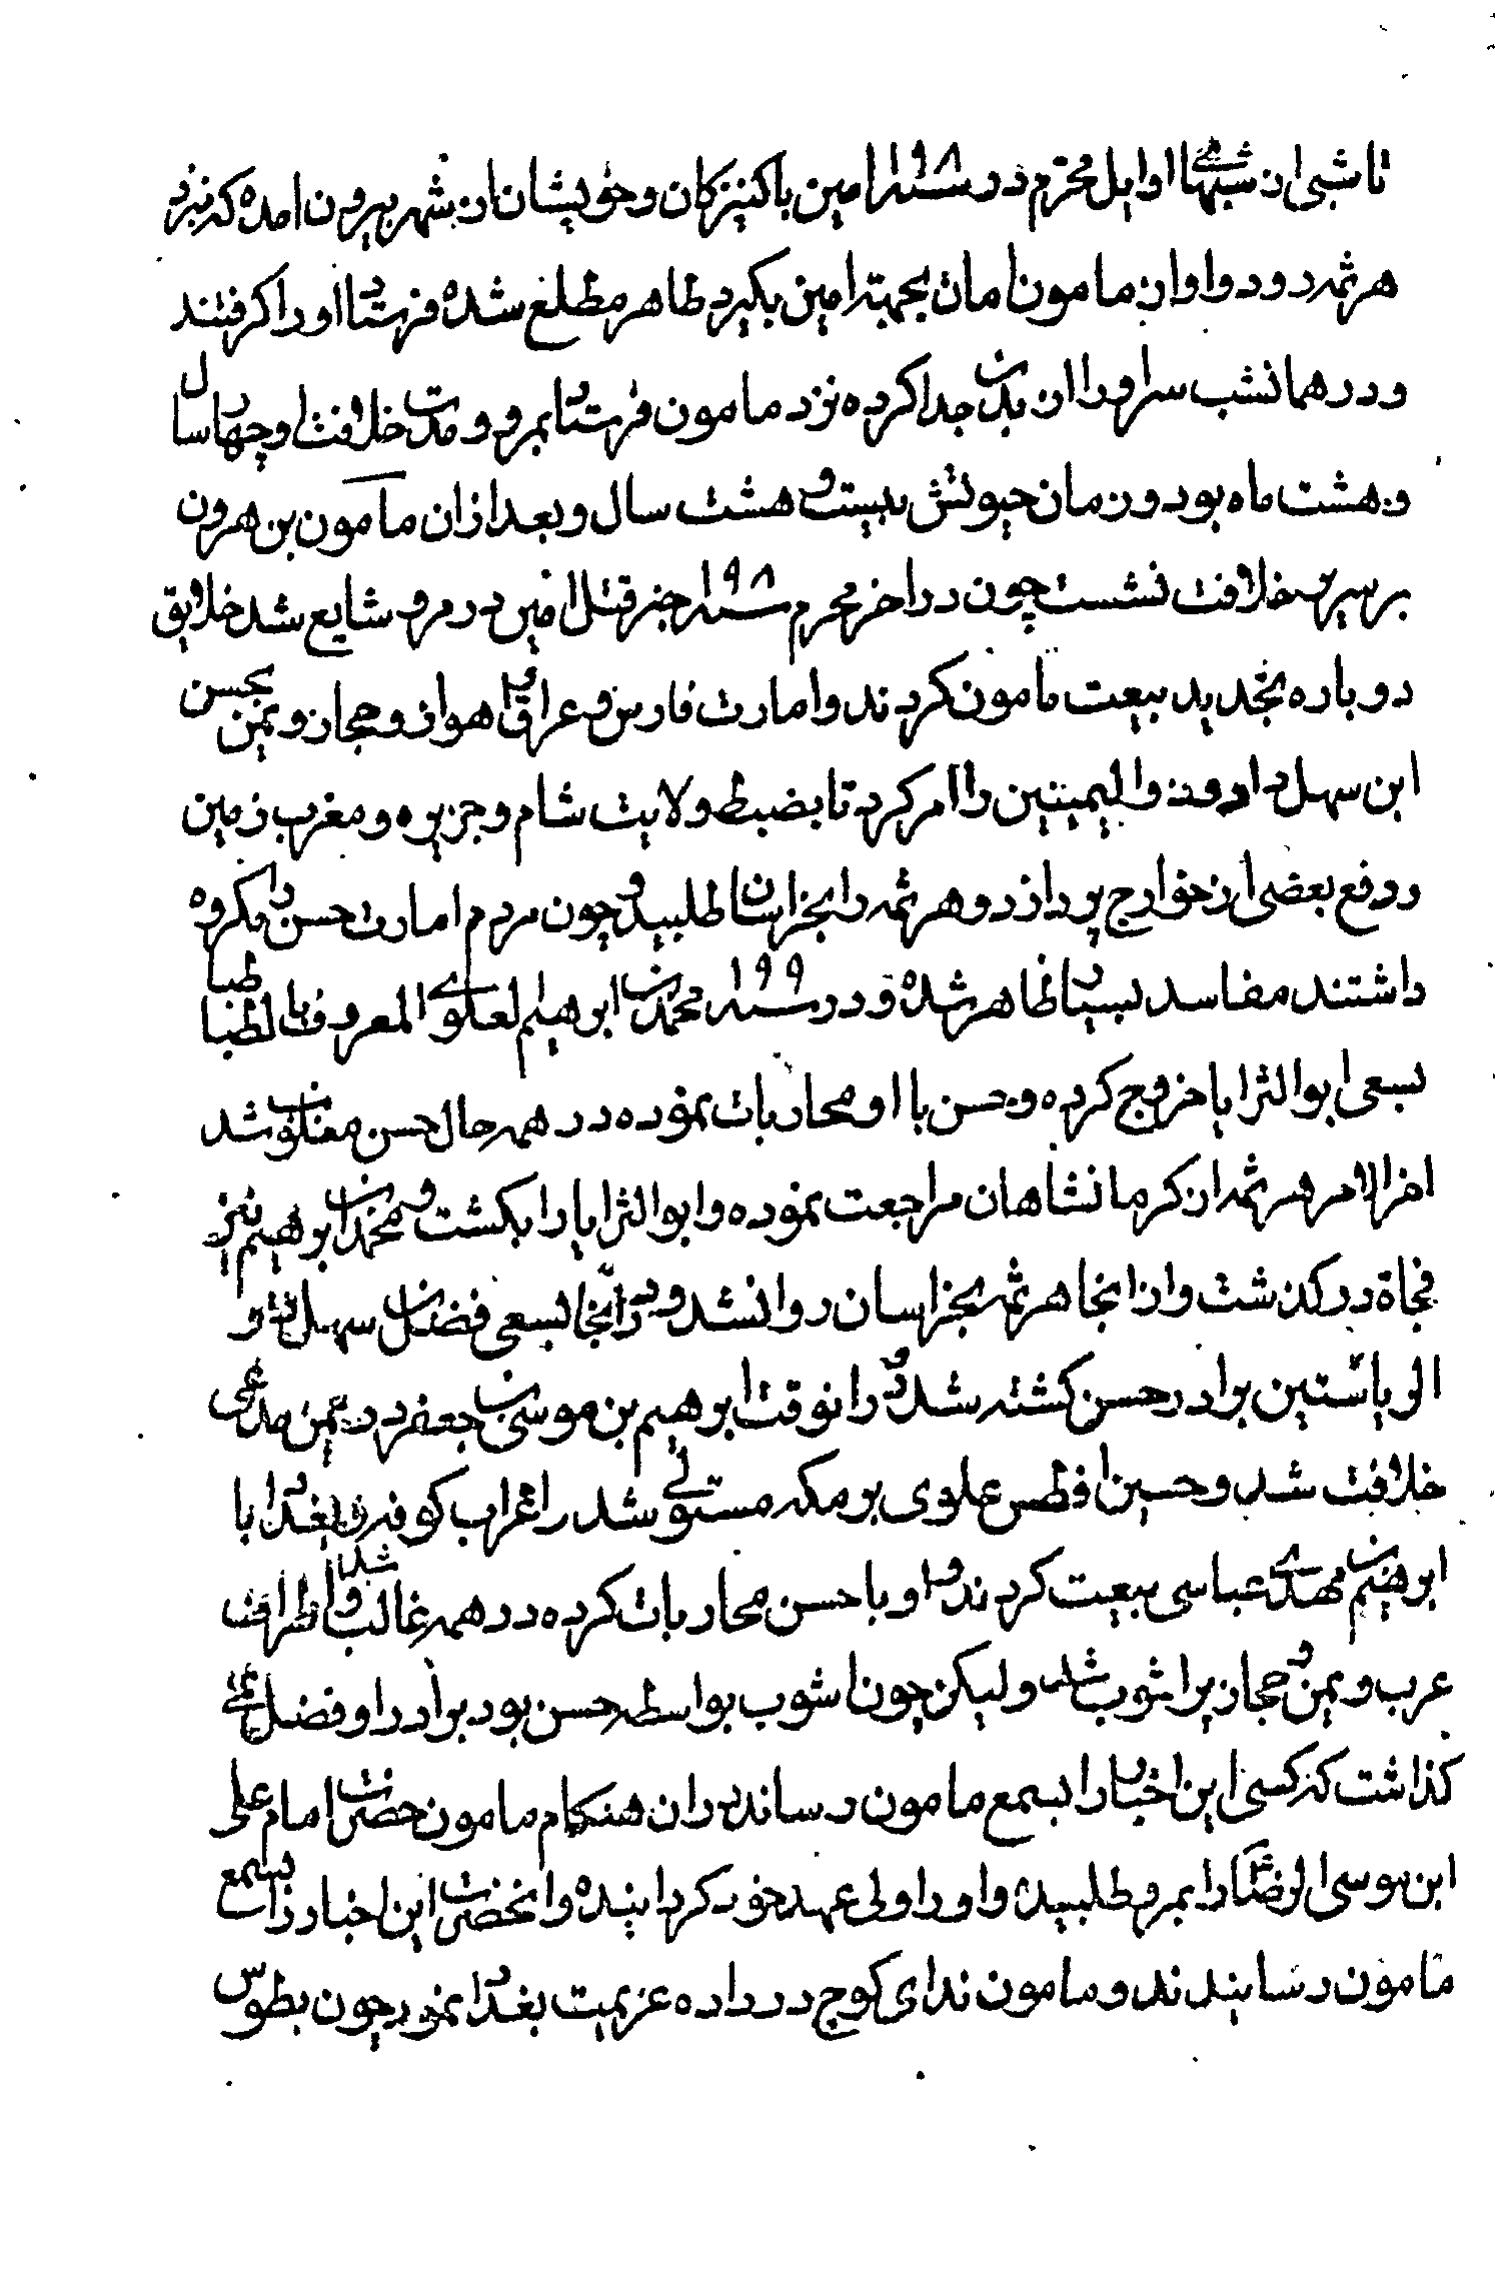 تا شبی از شبهای اوایل محرم در سنه ۱۹۸ امین با کنیزکان و خویشان از شهر بیرون امده که نزد
هرثمه رود و او از مامون امان بجهة امین بکیرد طاهر مطلع شده فرستاد او را کرفتند
و در همانشب سر او را از بدن جدا کرده نزد مامون فرستاد بمرو و مدت خلافت او چهار سال
و هشت ماه بود و زمان حیوتش بیست و هشت سال و بعد از ان مامون بن هرون
بر سریر خلافت نشست چون در اخر محرم سنه ۱۹۸ خبر قتل امین در مرو شایع شد خلایق
دوباره تجدید بیعت مامون کردند و امارت فارس و عراق و اهواز و حجاز و یمن بحسن
ابن سهل داد و ذو الیمینین را امر کرد تا بضبط ولایت شام و جزیره و مغرب زمین
و دفع بعضی از خوارج پردازد و هرثمه را بخراسان طلبید و چون مردم امارت حسن را مکروه
داشتند مفاسد بسیار ظاهر شده و در سنه ۱۹۹ محمد بن ابرهیم لعلوی المعروف بابطباطبا
بسعی ابو السرایا خروج کرده و حسن با او محاربات نموده در همه حال حسن مغلوب شد
اخر الامر هرثمه از کرمانشاهان مراجعت نموده و ابو السرایا را بکشت و محمد بن ابرهیم نیز
فجاة درکذشت و از انجا هرثمه بخراسان روانشد و در انجا بسعی فضل بن سهل ذو
الریاستین برادر حسن کشته شد و در انوقت ابرهیم بن موسی بن جعفر در یمن مدعی
خلافت شد و حسین افطس علوی بر مکه مستولی شد و اعراب کوفه و بغداد با
ابرهیم بن مهدی عباسی بیعت کردند و او با حسن محاربات کرده در همه غالب شد و اطراف
عرب و یمن و حجاز پر اشوب شد و لیکن چون اشوب بواسطه حسن بود برادر او فضل نمی
کذاشت که کسی این اخبار را بسمع مامون رساند در ان هنکام مامون حضرت امام علی
ابن موسی الرضا را بمرو طلبیده و او را ولی عهد خود کردانیده و انحضرت این اخبار را بسمع
مامون رسانیدند و مامون ندای کوچ در داده عزیمت بغداد نمود چون بطوس